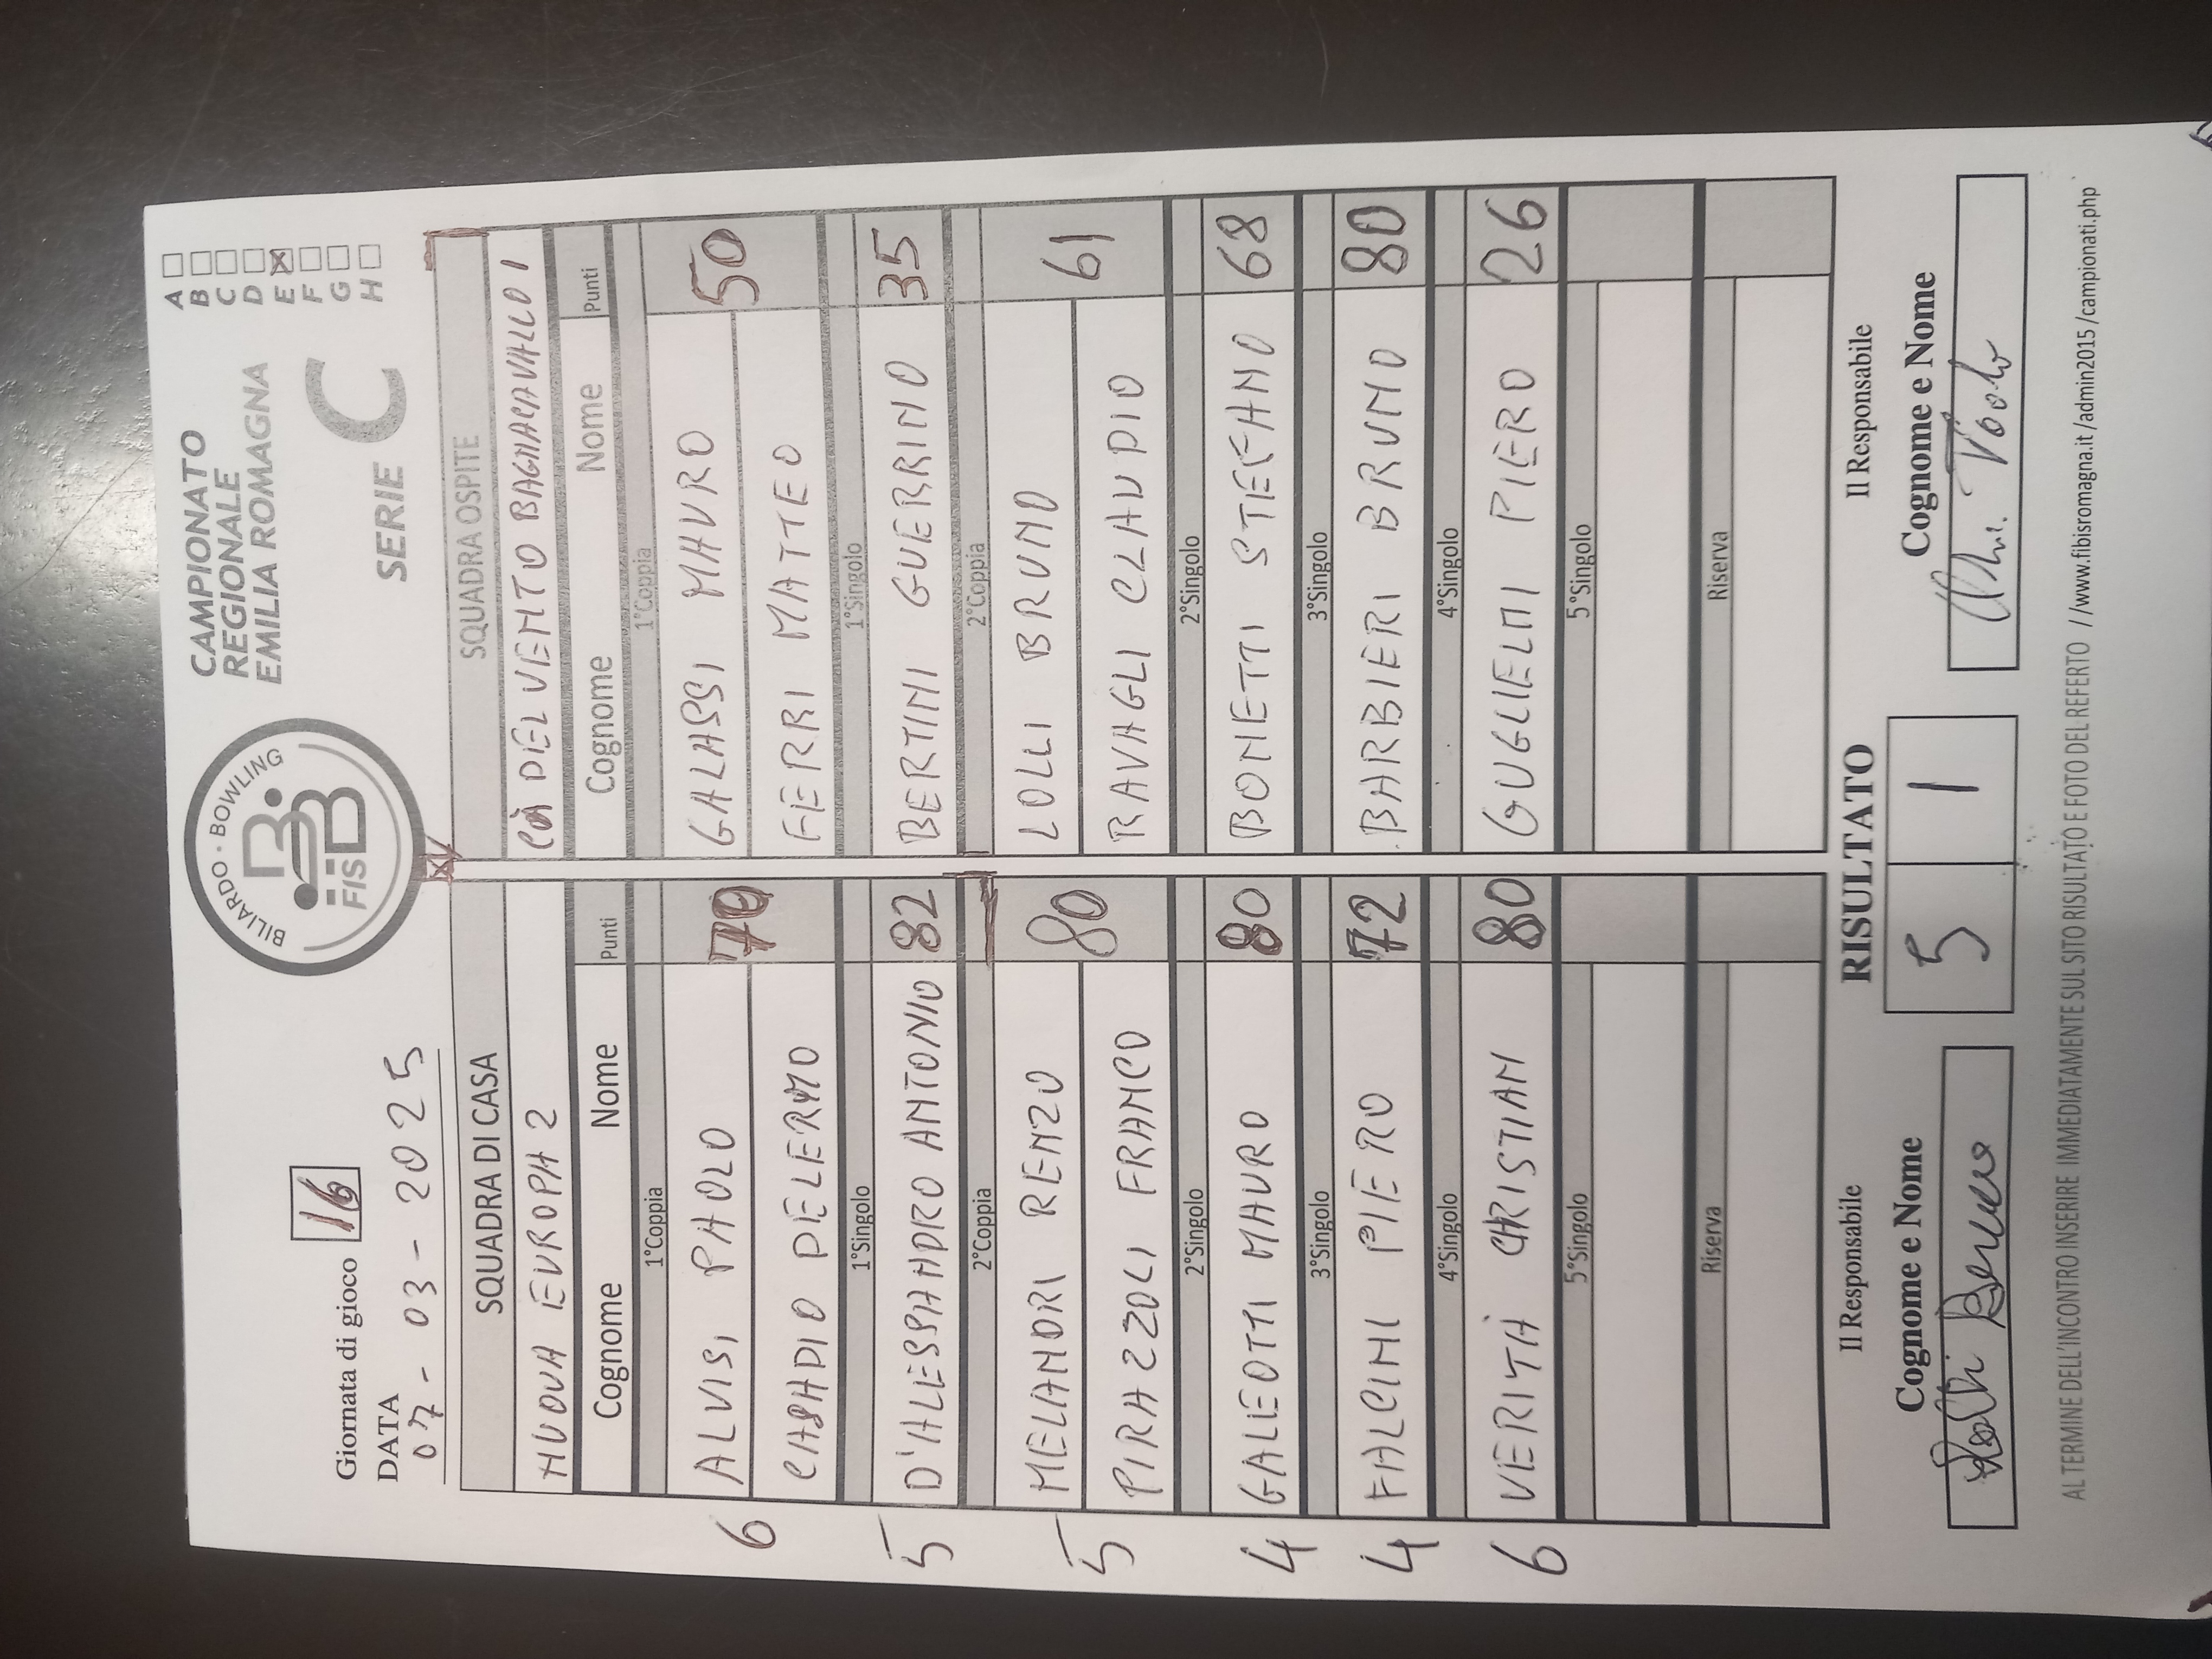 Giornata di gioco 16
DATA
07-03-2025
BILIARDO · BOWLING
FISBB
CAMPIONATO
REGIONALE
EMILIA ROMAGNA
SERIE C
A
B
C
D
E X
F
G
H
SQUADRA DI CASA SQUADRA OSPITE
NUOVA EUROPA 2 CÀ DEL VENTO BAGNACAVALLO 1
Cognome Nome Punti Cognome Nome Punti
1°Coppia 1°Coppia
6 ALVISI PAOLO GALASSI MAURO 50
CASADIO DELERMO FERRI MATTEO
1°Singolo 1°Singolo
5 D'ALESSANDRO ANTONIO 82 BERTINI GUERRINO 35
2°Coppia 2°Coppia
5 MELANDRI RENZO 80 LOLLI BRUNO 61
PIRAZZOLI FRANCO RAVAGLI CLAUDIO
2°Singolo 2°Singolo
4 GALEOTTI MAURO 80 BONETTI STEFANO 68
3°Singolo 3°Singolo
4 FALCINI PIERO 72 BARBIERI BRUNO 80
4°Singolo 4°Singolo
6 VERITÀ CRISTIAN 80 GUGLIELMI PIERO 26
5°Singolo 5°Singolo
Riserva Riserva
Il Responsabile RISULTATO Il Responsabile
Cognome e Nome 5 1 Cognome e Nome
AL TERMINE DELL'INCONTRO INSERIRE IMMEDIATAMENTE SUL SITO RISULTATO E FOTO DEL REFERTO //www.fibisromagna.it/admin2015/campionati.php